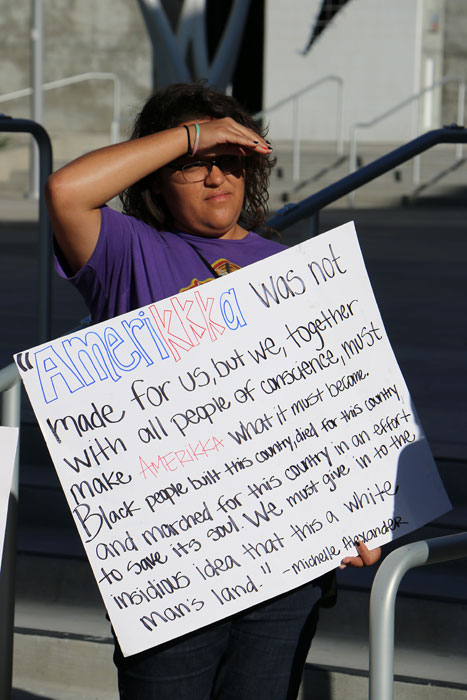 "Amerikkka was not
made for us, but we, together
with all people of conscience, must
make AMERIKKA what it must become.
Black people built this country, died for this country,
and marched for this country in an effort
to save its soul. We must give in to the
insidious idea that this a white
man's land." -Michelle Alexander